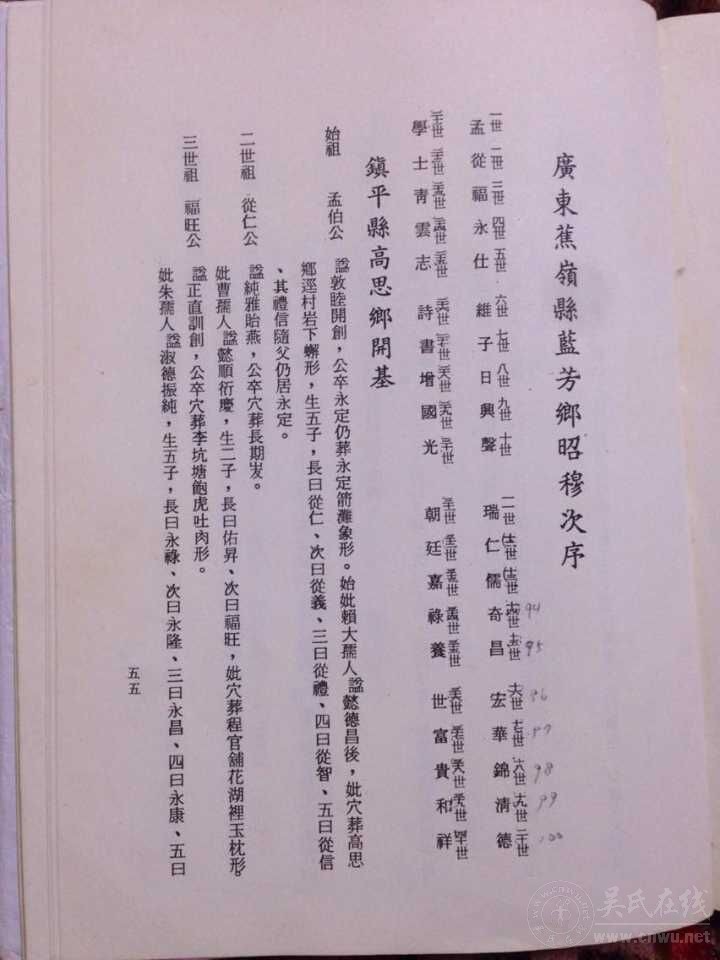 廣東蕉嶺縣藍芳鄉昭穆次序
一世 二世 三世 四世 五世 六世 七世 八世 九世 十世 十一世 十二世 十三世 十四世 十五世 十六世 十七世 十八世 十九世 二十世
孟從福永仕 維子日興聲 瑞仁儒奇昌 宏華錦清德
94 95 96 97 98 99 100
學士青雲志 詩書增國光 朝廷嘉祿養 世富貴和祥
鎮平縣高思鄉開基
始祖 孟伯公 諡敦睦開創，公卒永定仍葬永定箭灘象形。始妣賴大孺人諡懿德昌後，妣穴葬高思
鄉逕村岩下蠏形，生五子，長曰從仁、次曰從義、三曰從禮、四曰從智、五曰從信
、其禮信隨父仍居永定。
二世祖 從仁公 諡純雅貽燕，公卒穴葬長期岃。
妣曹孺人諡懿順衍慶，生二子，長曰佑昇、次曰福旺，妣穴葬程官舖花湖裡玉枕形。
三世祖 福旺公 諡正直訓創，公卒穴葬李坑塘飽虎吐肉形。
妣朱孺人諡淑德振純，生五子，長曰永祿、次曰永隆、三曰永昌、四曰永康、五曰
五五
吴氏在线
www.cnwu.net